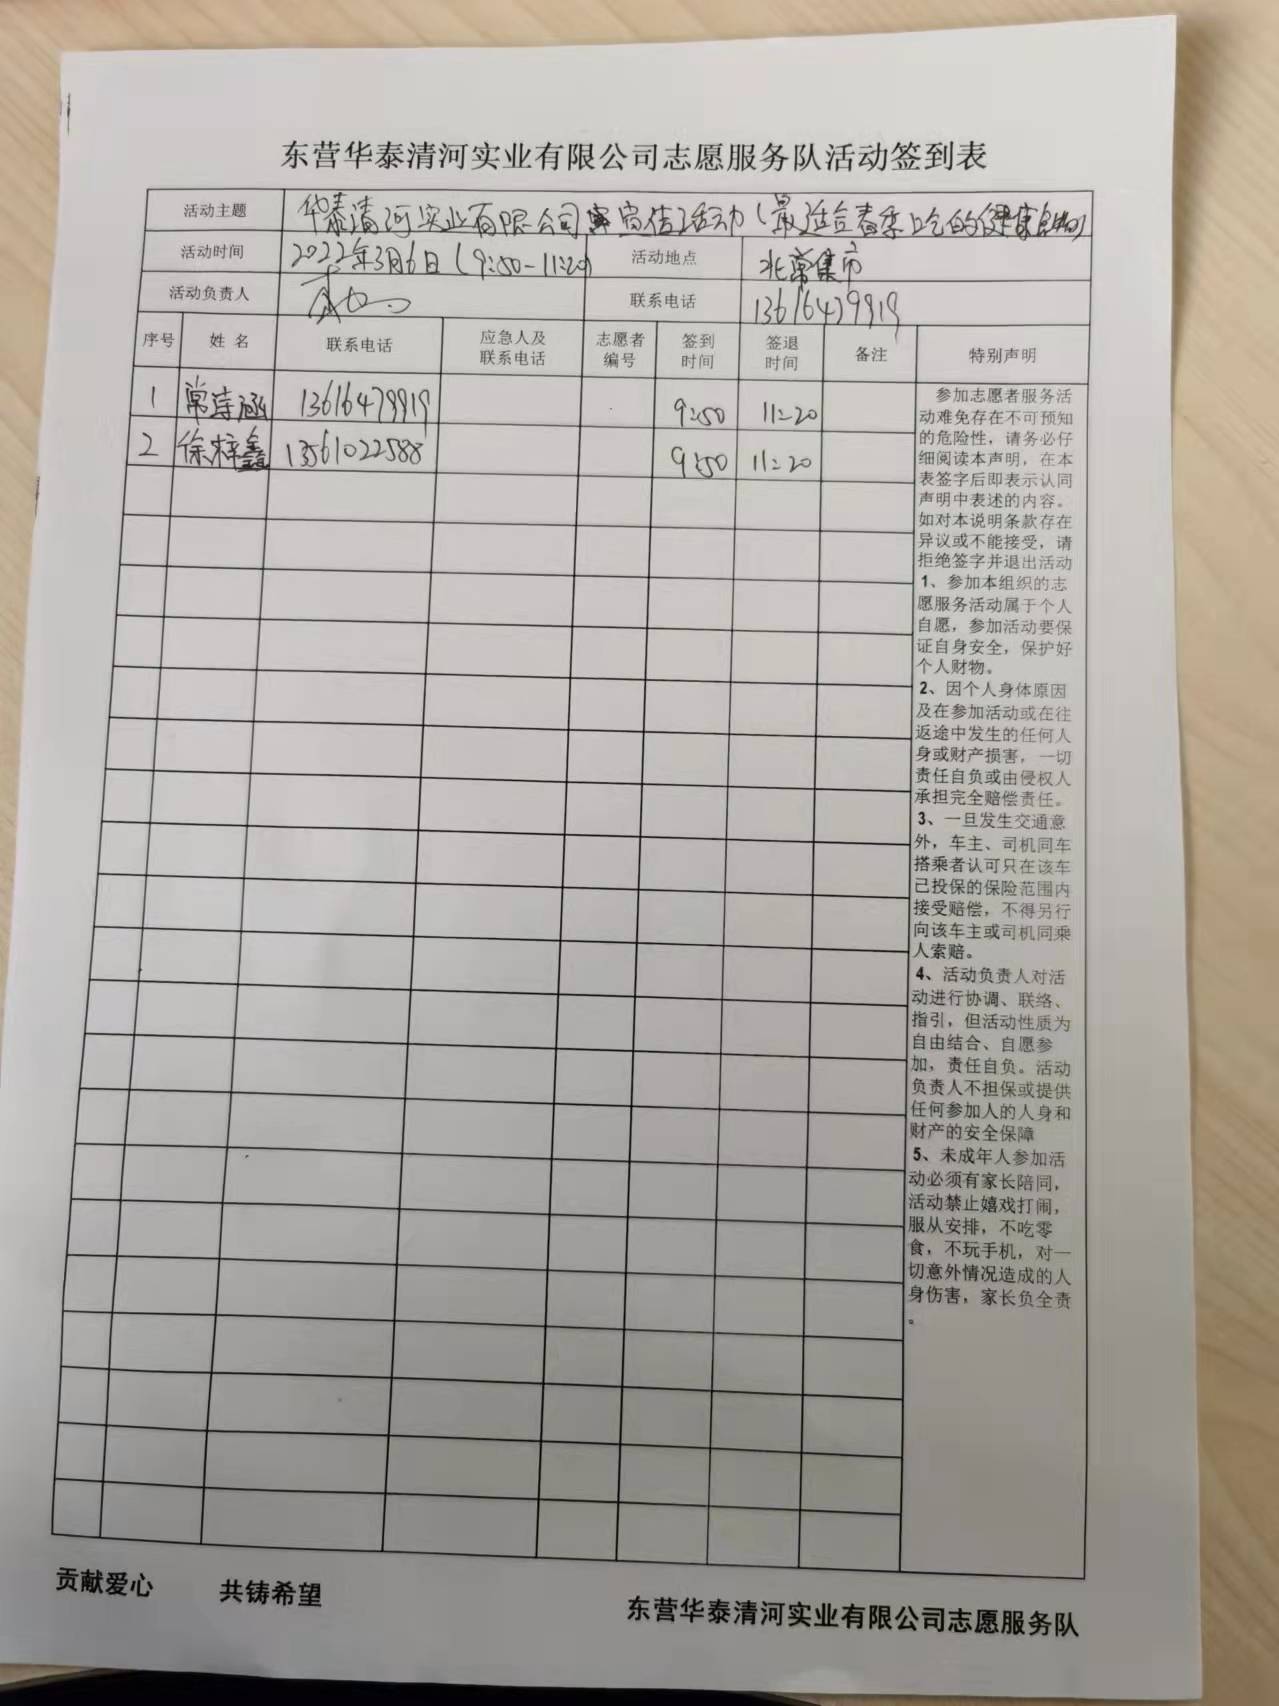 东营华泰清河实业有限公司志愿服务队活动签到表
活动主题 华泰清河实业有限公司 宣传活动(最适合春季吃的健康食物)
活动时间 2022年3月6日(9:50-11:20) 活动地点 北常集市
活动负责人 联系电话 13616479919
序号 姓名 联系电话 应急人及联系电话 志愿者编号 签到时间 签退时间 备注 特别声明
1 常诗涵 13616479919 9:50 11:20
2 徐梓鑫 13561022588 9:50 11:20
参加志愿者服务活
动难免存在不可预知
的危险性,请务必仔
细阅读本声明,在本
表签字后即表示认同
声明中表述的内容。
如对本说明条款存在
异议或不能接受,请
拒绝签字并退出活动
1、参加本组织的志
愿服务活动属于个人
自愿,参加活动要保
证自身安全,保护好
个人财物。
2、因个人身体原因
及在参加活动或在往
返途中发生的任何人
身或财产损害,一切
责任自负或由侵权人
承担完全赔偿责任。
3、一旦发生交通意
外,车主、司机同车
搭乘者认可只在该车
已投保的保险范围内
接受赔偿,不得另行
向该车主或司机同乘
人索赔。
4、活动负责人对活
动进行协调、联络、
指引,但活动性质为
自由结合、自愿参
加,责任自负。活动
负责人不担保或提供
任何参加人的人身和
财产的安全保障
5、未成年人参加活
动必须有家长陪同,
活动禁止嬉戏打闹,
服从安排,不吃零
食,不玩手机,对一
切意外情况造成的人
身伤害,家长负全责
。
贡献爱心 共铸希望 东营华泰清河实业有限公司志愿服务队